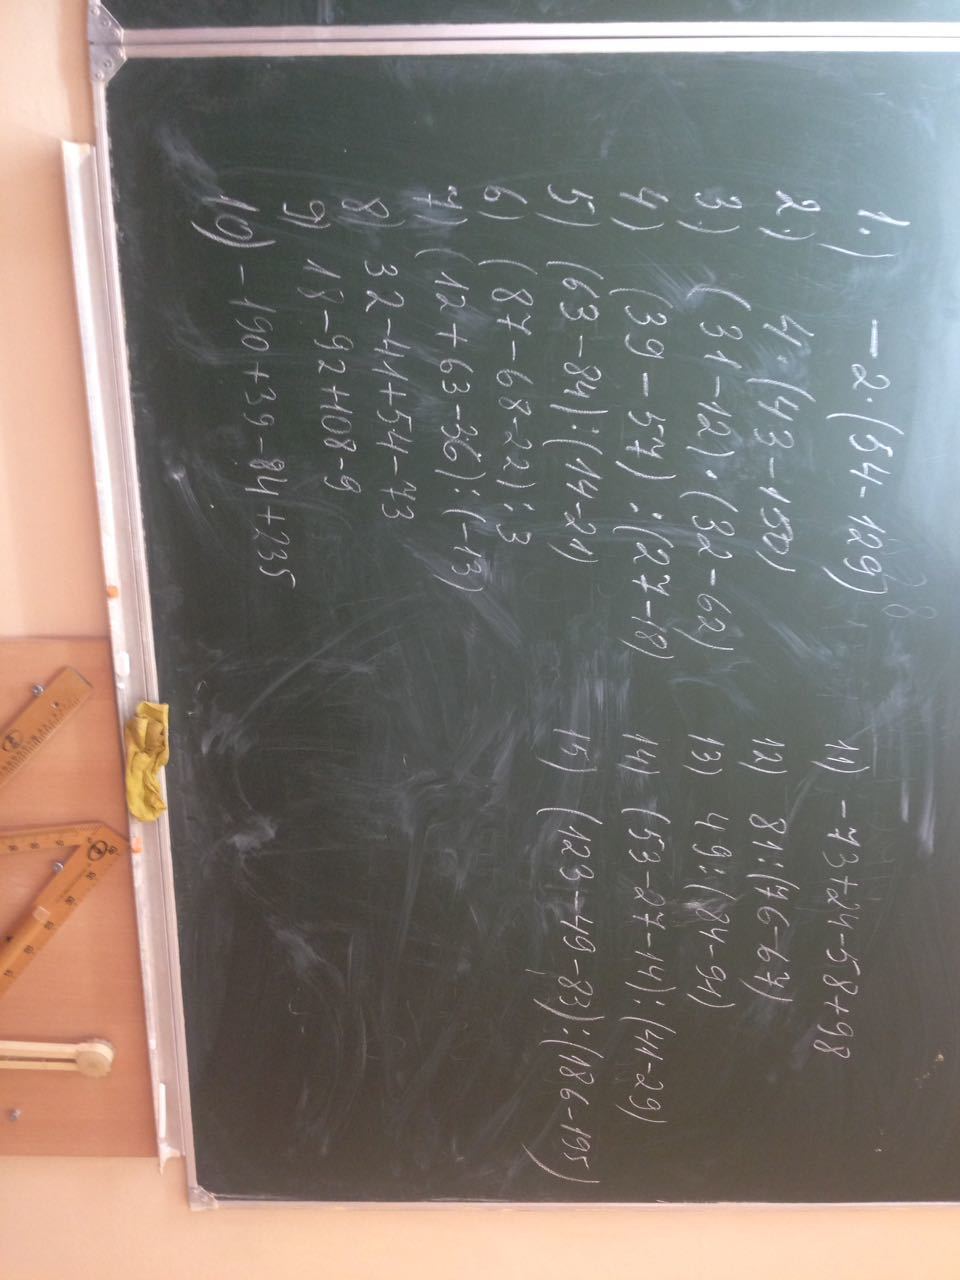 1.) -2·(54-129)
2.) 4·(43-150)
3.) (31-12)·(32-62)
4) (39-57):(27-18)
5) (63-84):(14-21)
6) (87-68-22):3
7) (12+63-36):(-13)
8) 32-41+54-73
9) 18-92+108-9
10) -190+39-84+235
11) -73+24-58+98
12) 81:(76-67)
13) 49:(84-91)
14) (53-27-14):(41-29)
15) (123-49-83):(186-195)